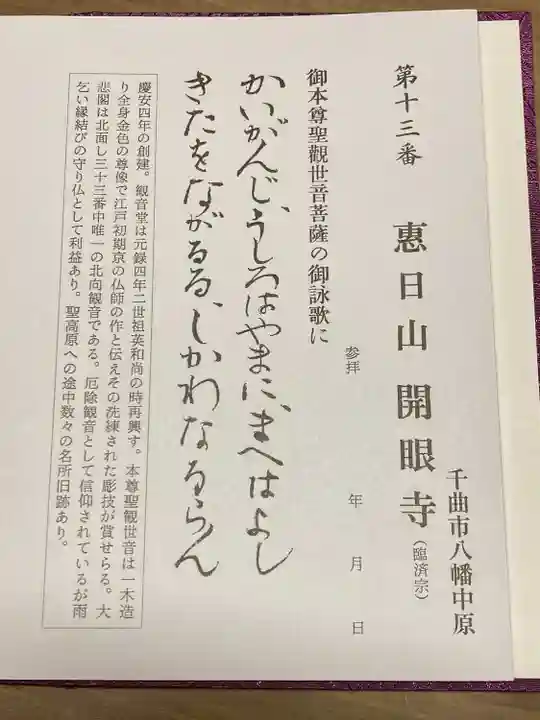 千曲市八幡中原
第十三番 惠日山開眼寺(臨済宗)
参拝 年 月 日
御本尊聖觀世音菩薩の御詠歌に
かいがんじ、うしろはやまに、まへはよし
きたをながるる、しかわなるらん
慶安四年の創建。観音堂は元録四年二世祖英和尚の時再興す。本尊聖観世音は一木造
り全身金色の尊像で江戸初期京の仏師の作と伝えその洗練された彫技が賞せらる。大
悲閣は北面し三十三番中唯一の北向観音である。厄除観音として信仰されているが雨
乞い縁結びの守り仏として利益あり。聖高原への途中数々の名所旧跡あり。